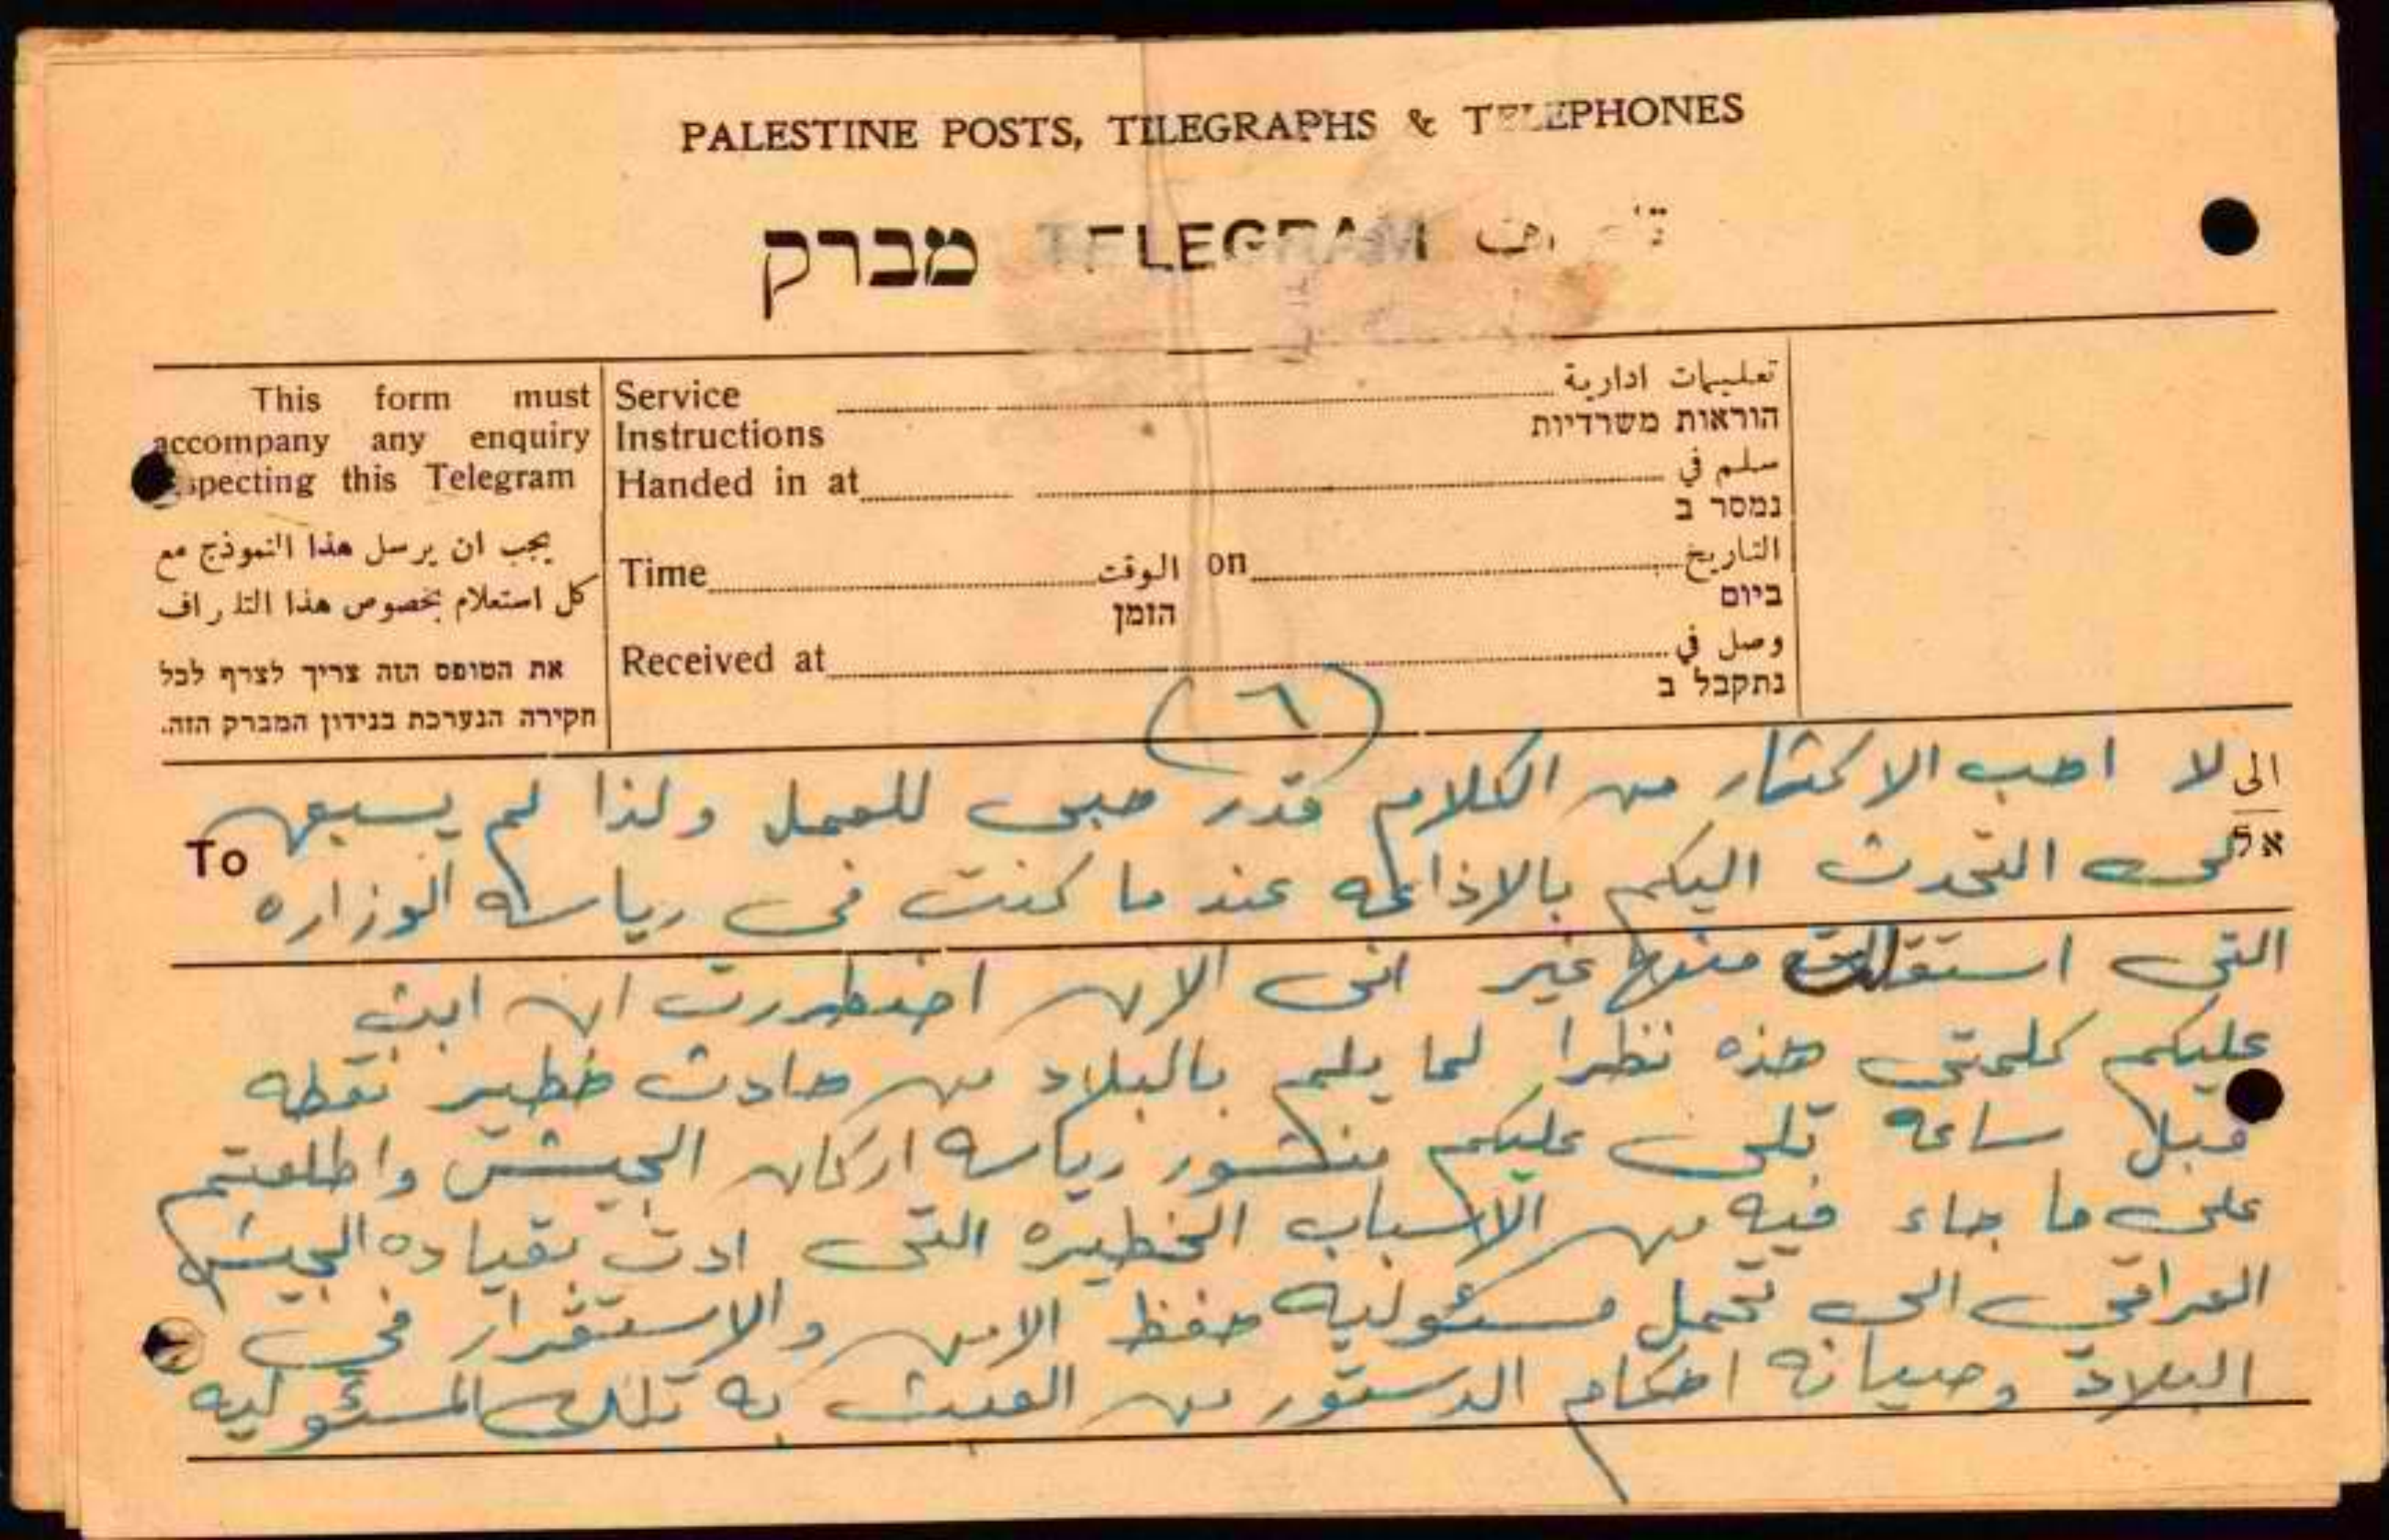 PALESTINE POSTS, TELEGRAPHS & TELEPHONES
מברק TELEGRAM
This form must
accompany any enquiry
specting this Telegram
يجب ان يرسل هذا النموذج مع
كل استعلام بخصوص هذا التلراف
את הטופס הזה צריך לצרף לכל
חקירה הנערכת בנידון המברק הזה.
Service تعليمات ادارية
Instructions הוראות משרדיות
Handed in at سلم في
נמסר ב
Time الوقت on التاريخ
הזמן ביום
Received at وصل في
נתקבל ב
(٦)
الى
אל
To
لا احب الاكثار من الكلام قدر حبى للعمل ولذا لم يسبق
لى التحدث اليكم بالاذاعه عند ما كنت فى رياسه الوزاره
التى استقلت منها غير انى الان اضطررت ان ابث
عليكم كلمتى هذه نظرا لما يلم بالبلاد من حادث خطير نقطه
قبل ساعه تلى عليكم منشور رياسه اركان الجيش واطلعتم
على ما جاء فيه من الاسباب الخطيره التى ادت بقياده الجيش
العراقى الى تحمل مسئوليه حفظ الامن والاستقرار فى
البلاد وصيانه احكام الدستور من العبث به تلك المسئوليه